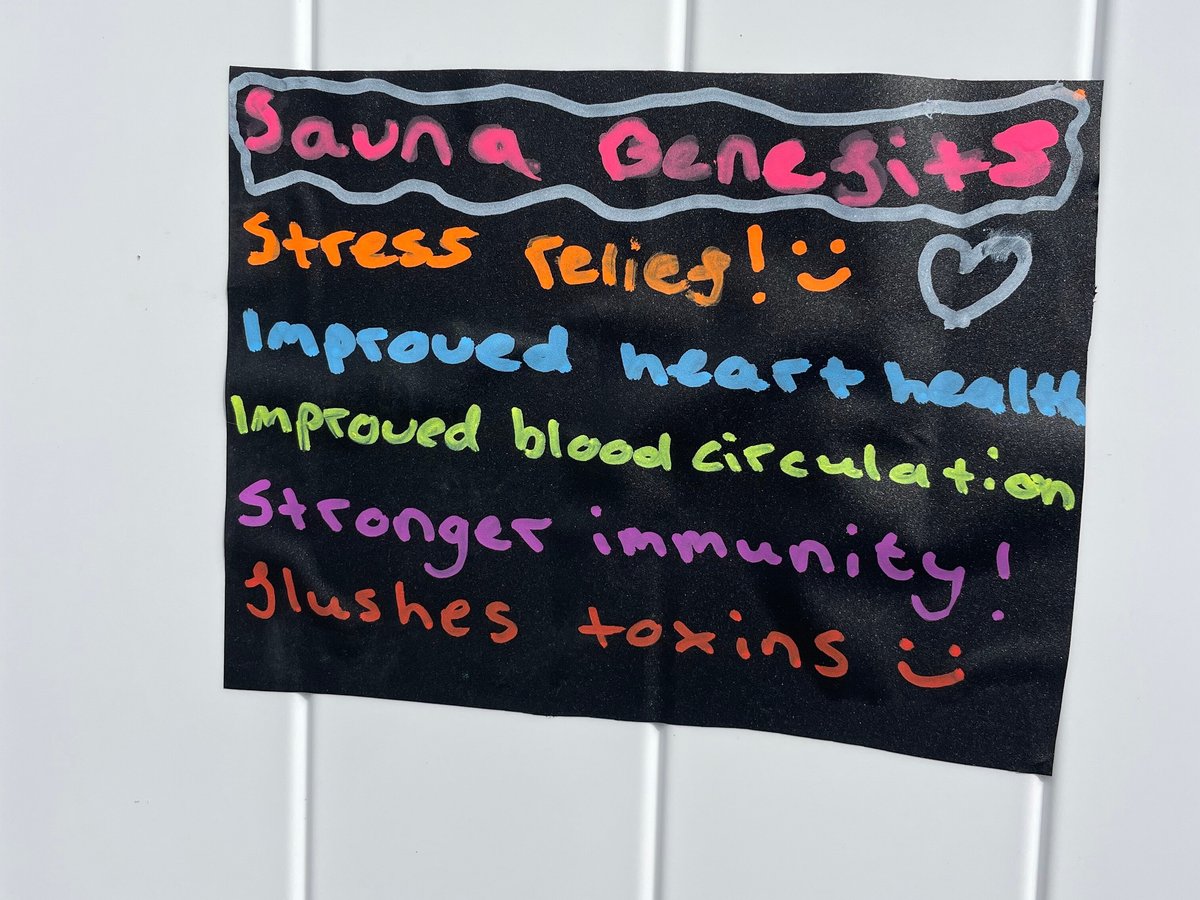 Sauna Benefits
Stress relief! :)
Improved heart health
Improved blood circulation
Stronger immunity!
flushes toxins :)